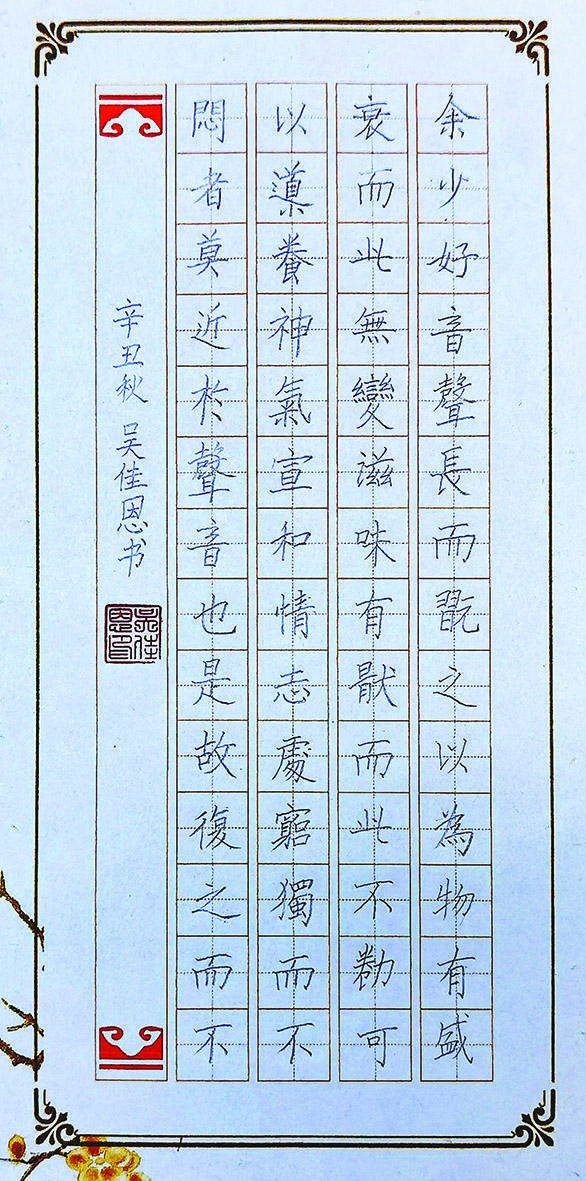 余少好音聲長而翫之以為物有盛
衰而此無變滋味有猒而此不勌可
以導養神氣宣和情志處窮獨而不
悶者莫近於聲音也是故復之而不
辛丑秋 吴佳恩书
吴佳恩印